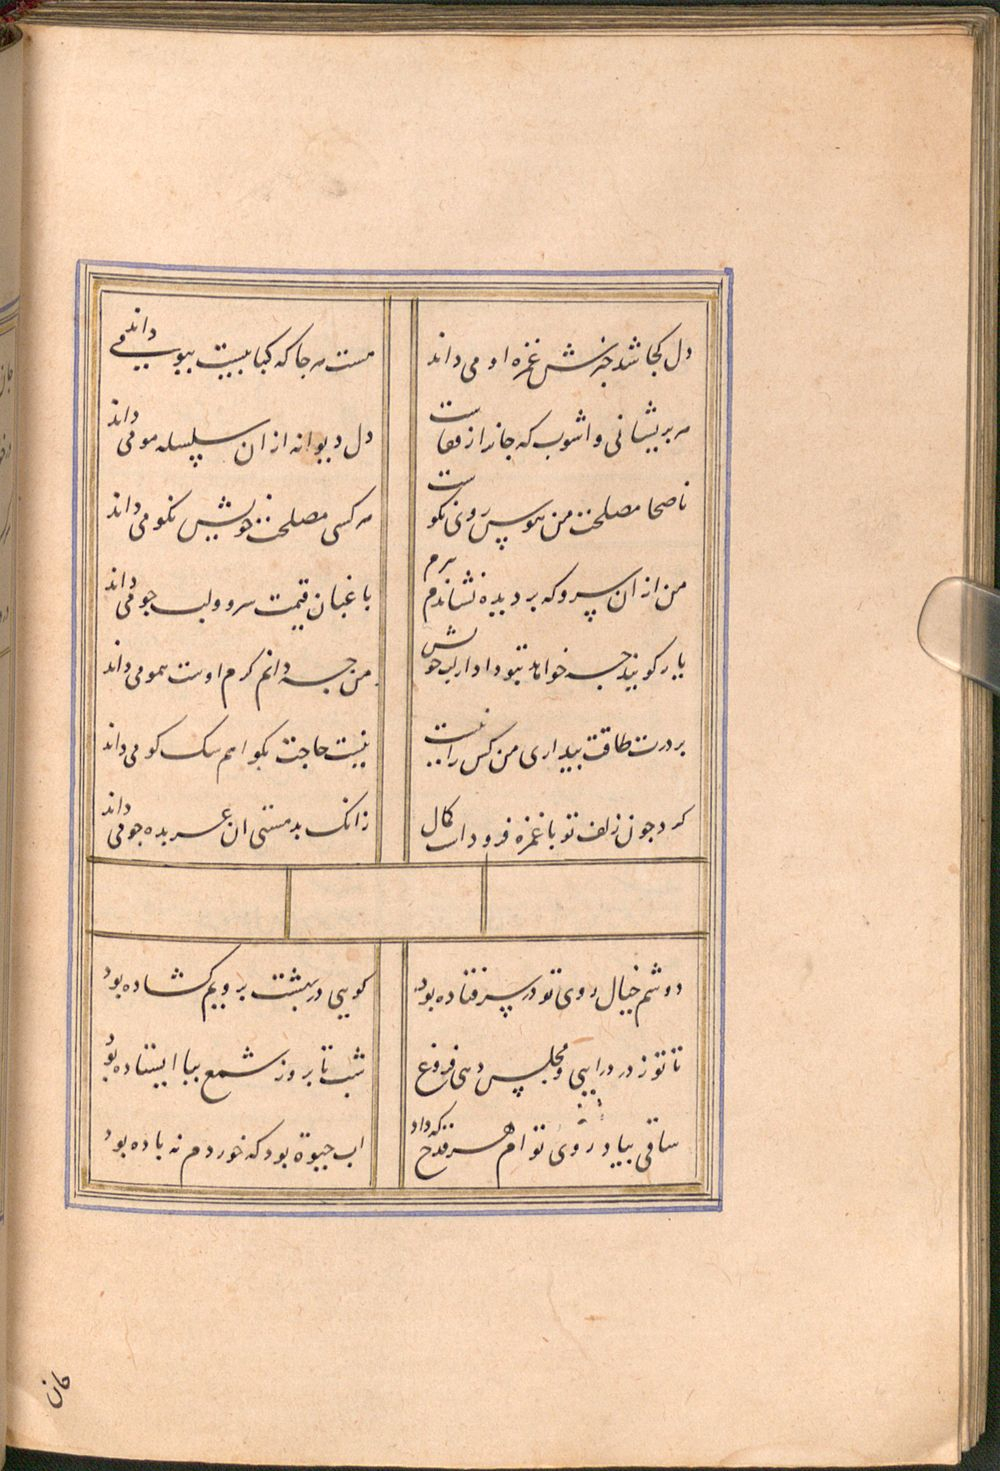 دل کجا شد خبرش غمزه او می داند
مست هر جا که کبابیست ببوی می داند
هر پریشانی و آشوب که جانرا ز قفاست
دل دیوانه از ان سلسله مو می داند
ناصحا مصلحت من هوس روی نکوست
هر کسی مصلحت خویش نکو می داند
من از ان سرو که بر دیده نشاندم برم
باغبان قیمت سرو و لب جو می داند
یار کویند چه خواهد بتو داد از لب خویش
من چه دانم کرم اوست همو می داند
بر درت طاقت بیداری من کس را نیست
نیست حاجت بکواهم سک کو می داند
کرد چون زلف تو با غمزه فرو داشت کمال
زانک بد مستی ان عربده جو می داند
دوشم خیال روی تو در سر فتاده بود
کویی در بهشت برویم کشاده بود
تا تو ز در درایی و مجلس دهی فروغ
شب تا بروز شمع بپا ایستاده بود
ساقی بیاد روی تو ام هر قدح که داد
اب حیوة بود که خوردم نه باده بود